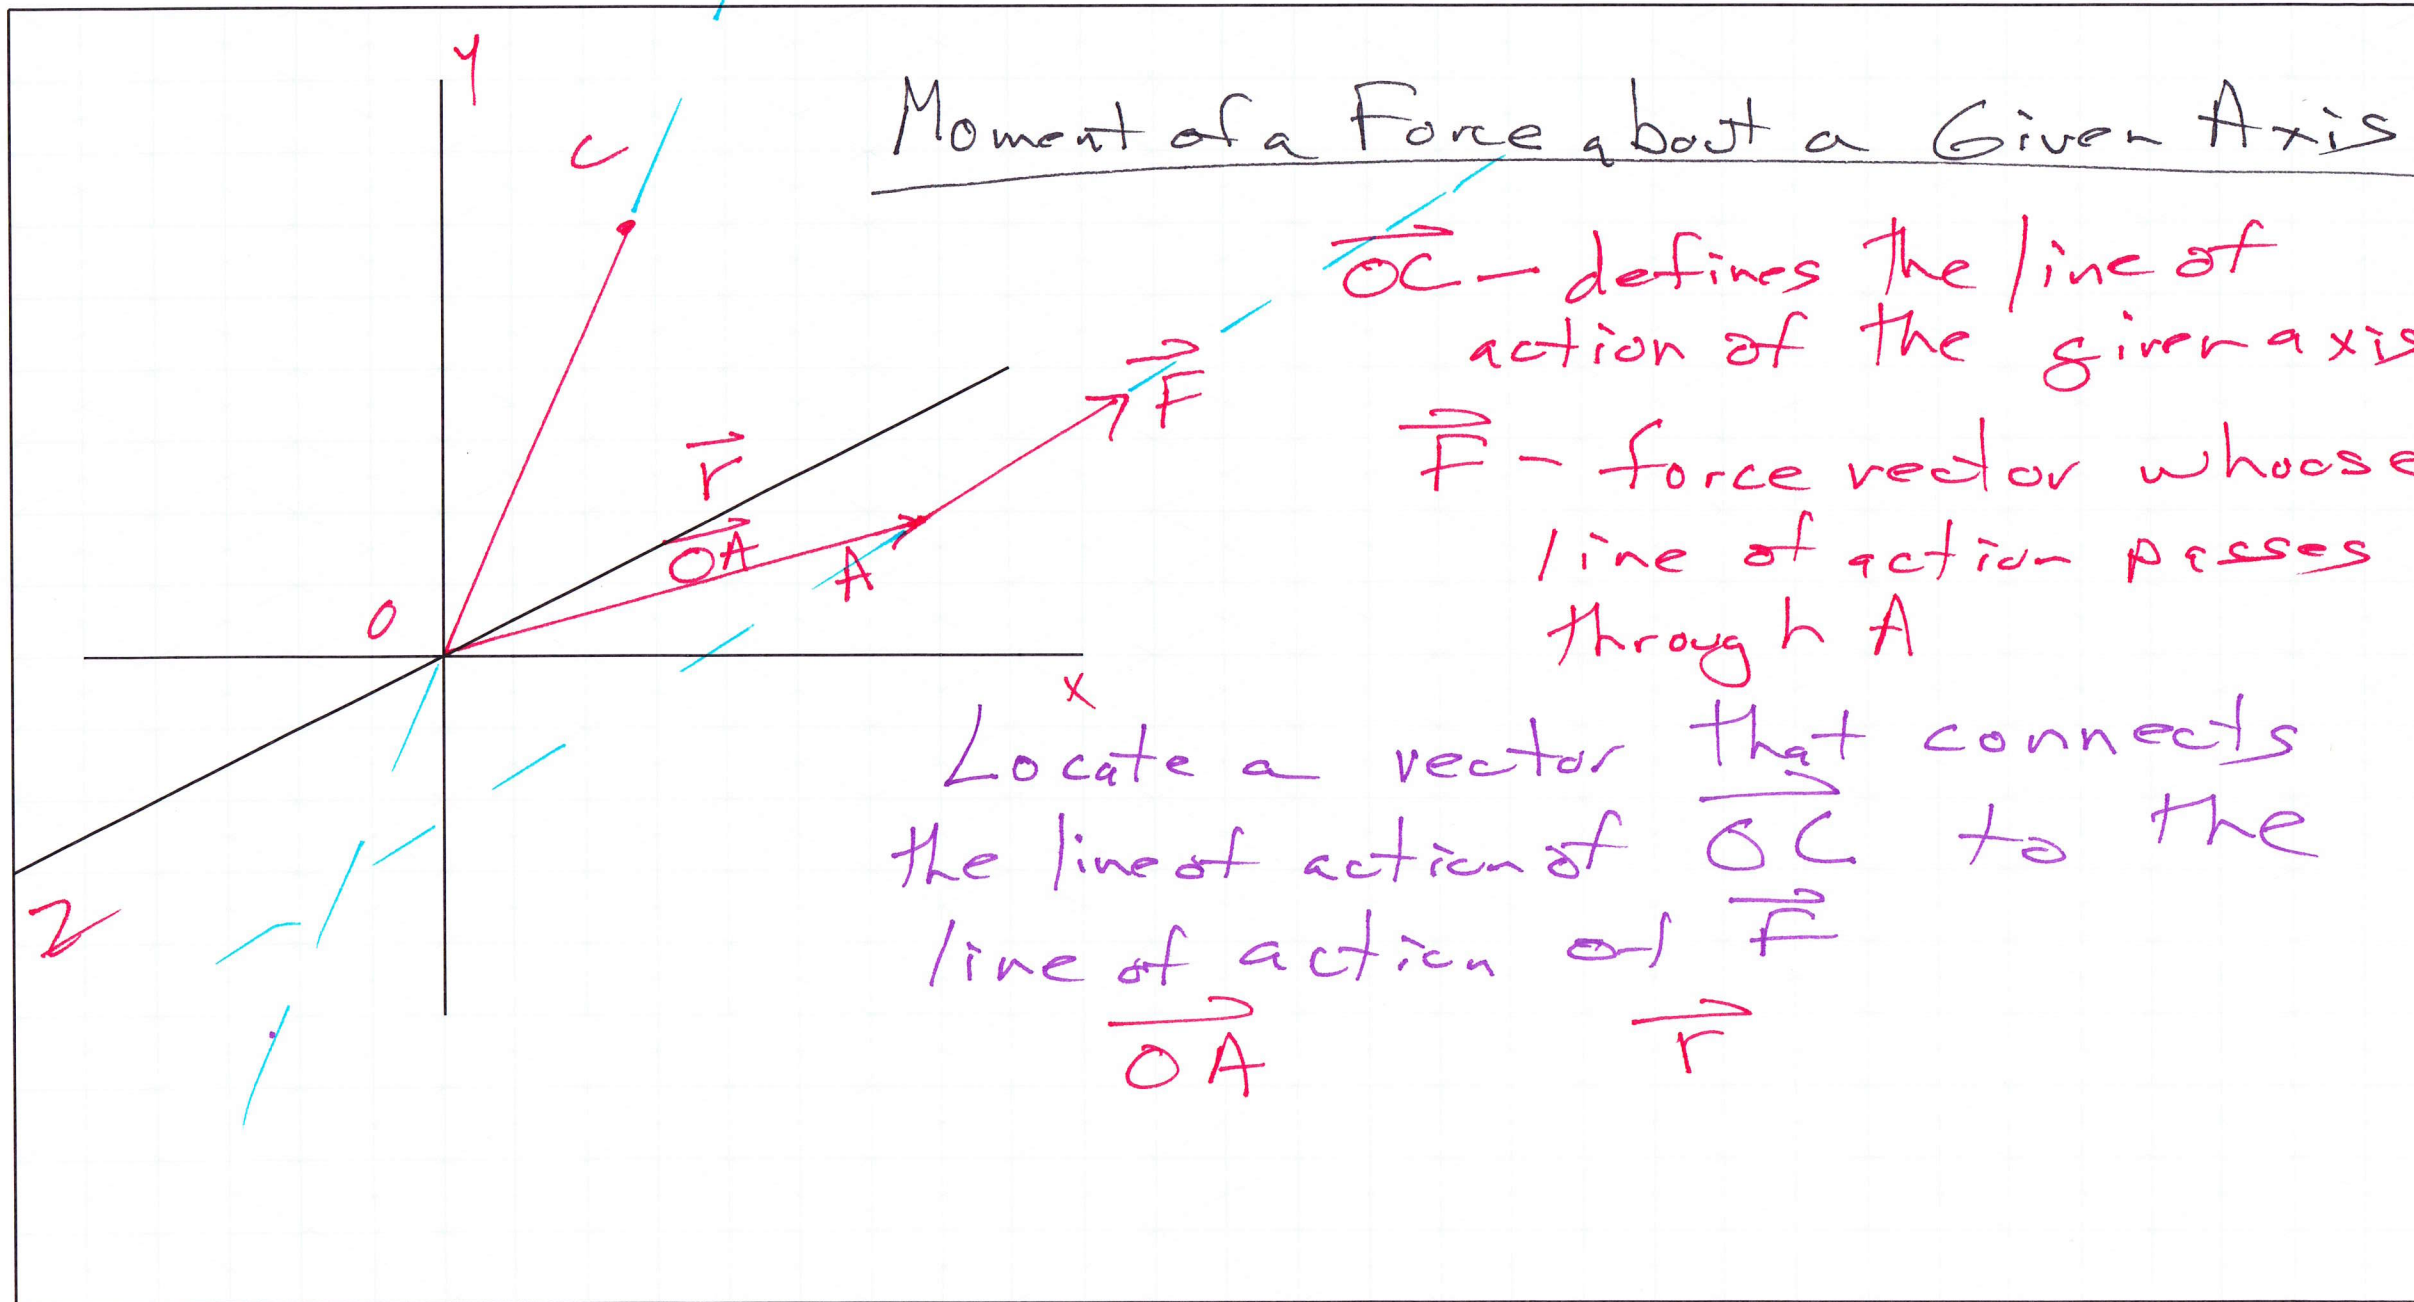 Y
C
Moment of a Force about a Given Axis
OC – defines the line of
action of the given axis
F – force vector whoose
line of action passes
through A
r
OA
A
F
O
X
Z
Locate a vector that connects
the line of action of OC to the
line of action of F
OA r